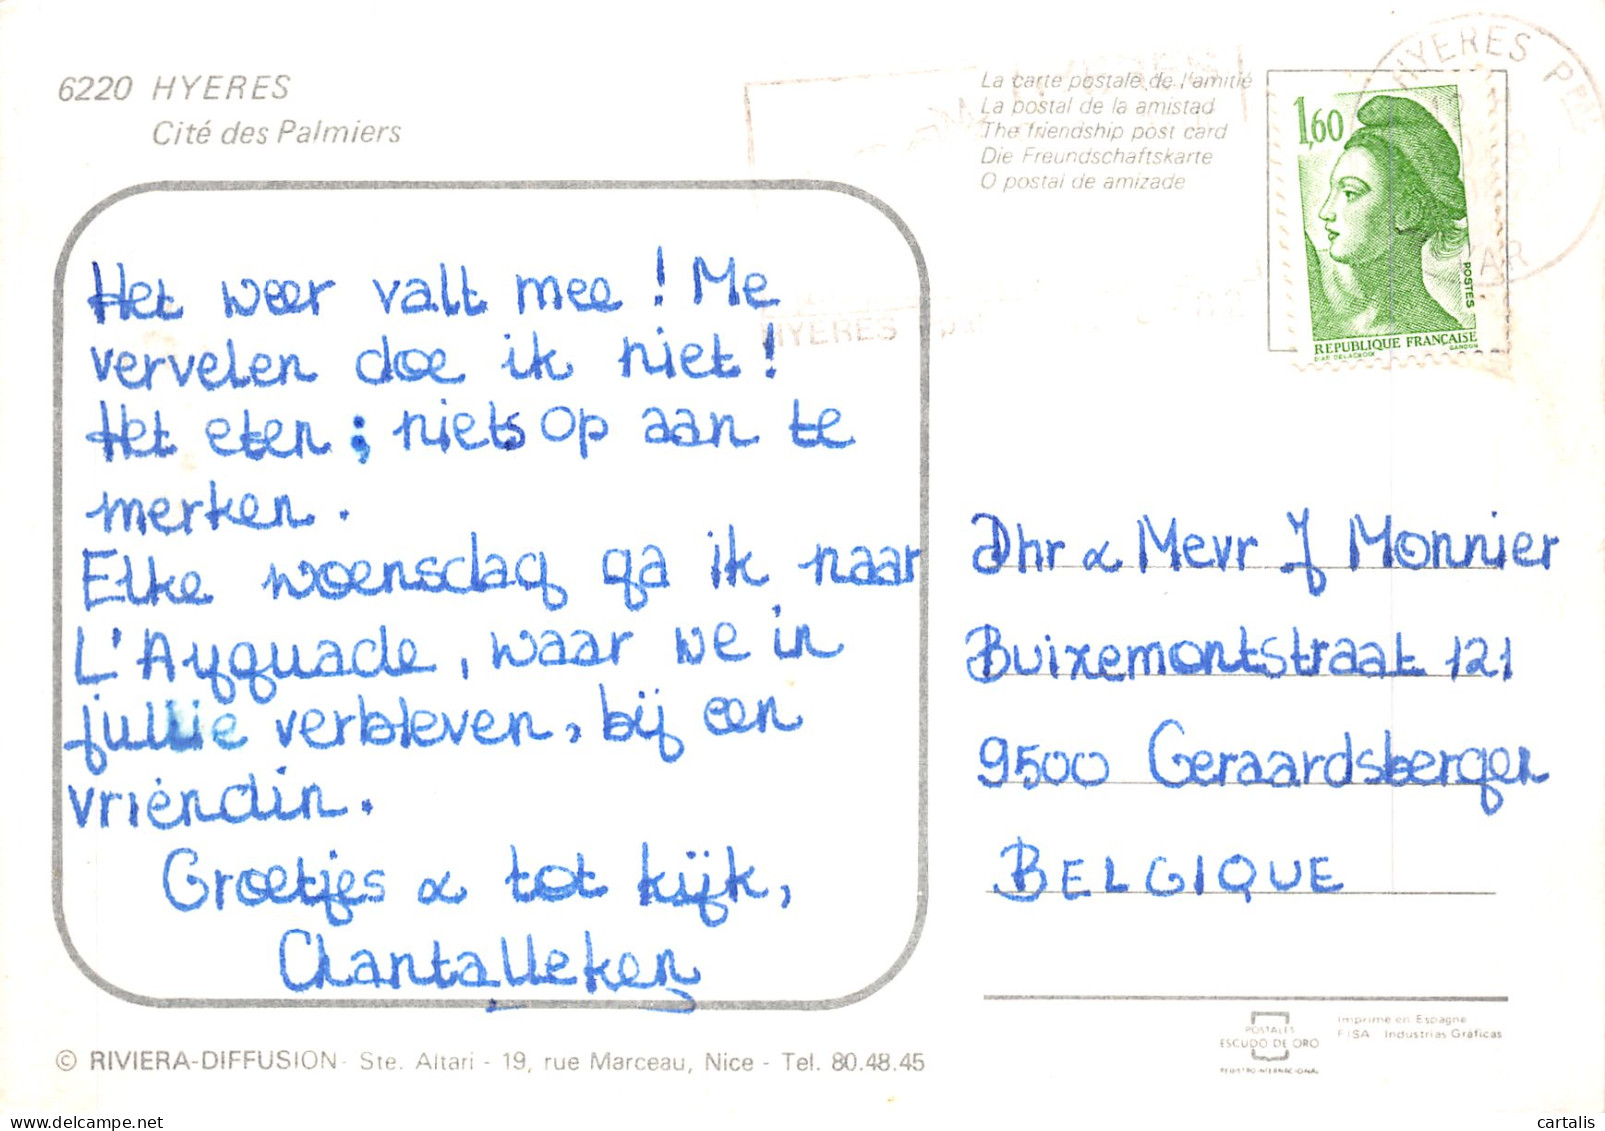 6220 HYERES
Cité des Palmiers
La carte postale de l'amitié
La postal de la amistad
The friendship post card
Die Freundschaftskarte
O postal de amizade
1,60
POSTES
REPUBLIQUE FRANÇAISE
D'AP. DELACROIX
GANDON
HYERES PPAL
VAR
HYERES
Het weer valt mee! Me
vervelen doe ik niet!
Het eten; niets op aan te
merken.
Elke woensdag ga ik naar
L'Ayguade, waar we in
jullie verbleven, bij een
vriendin.
Groetjes & tot kijk,
Chantalleken
Dhr & Mevr J Monnier
Buixemontstraat 121
9500 Geraardsbergen
BELGIQUE
© RIVIERA-DIFFUSION - Ste. Altari - 19, rue Marceau, Nice - Tel. 80.48.45
POSTALES
ESCUDO DE ORO
REGISTRO INTERNACIONAL
Imprimé en Espagne
FISA Industrias Gráficas
cartalis